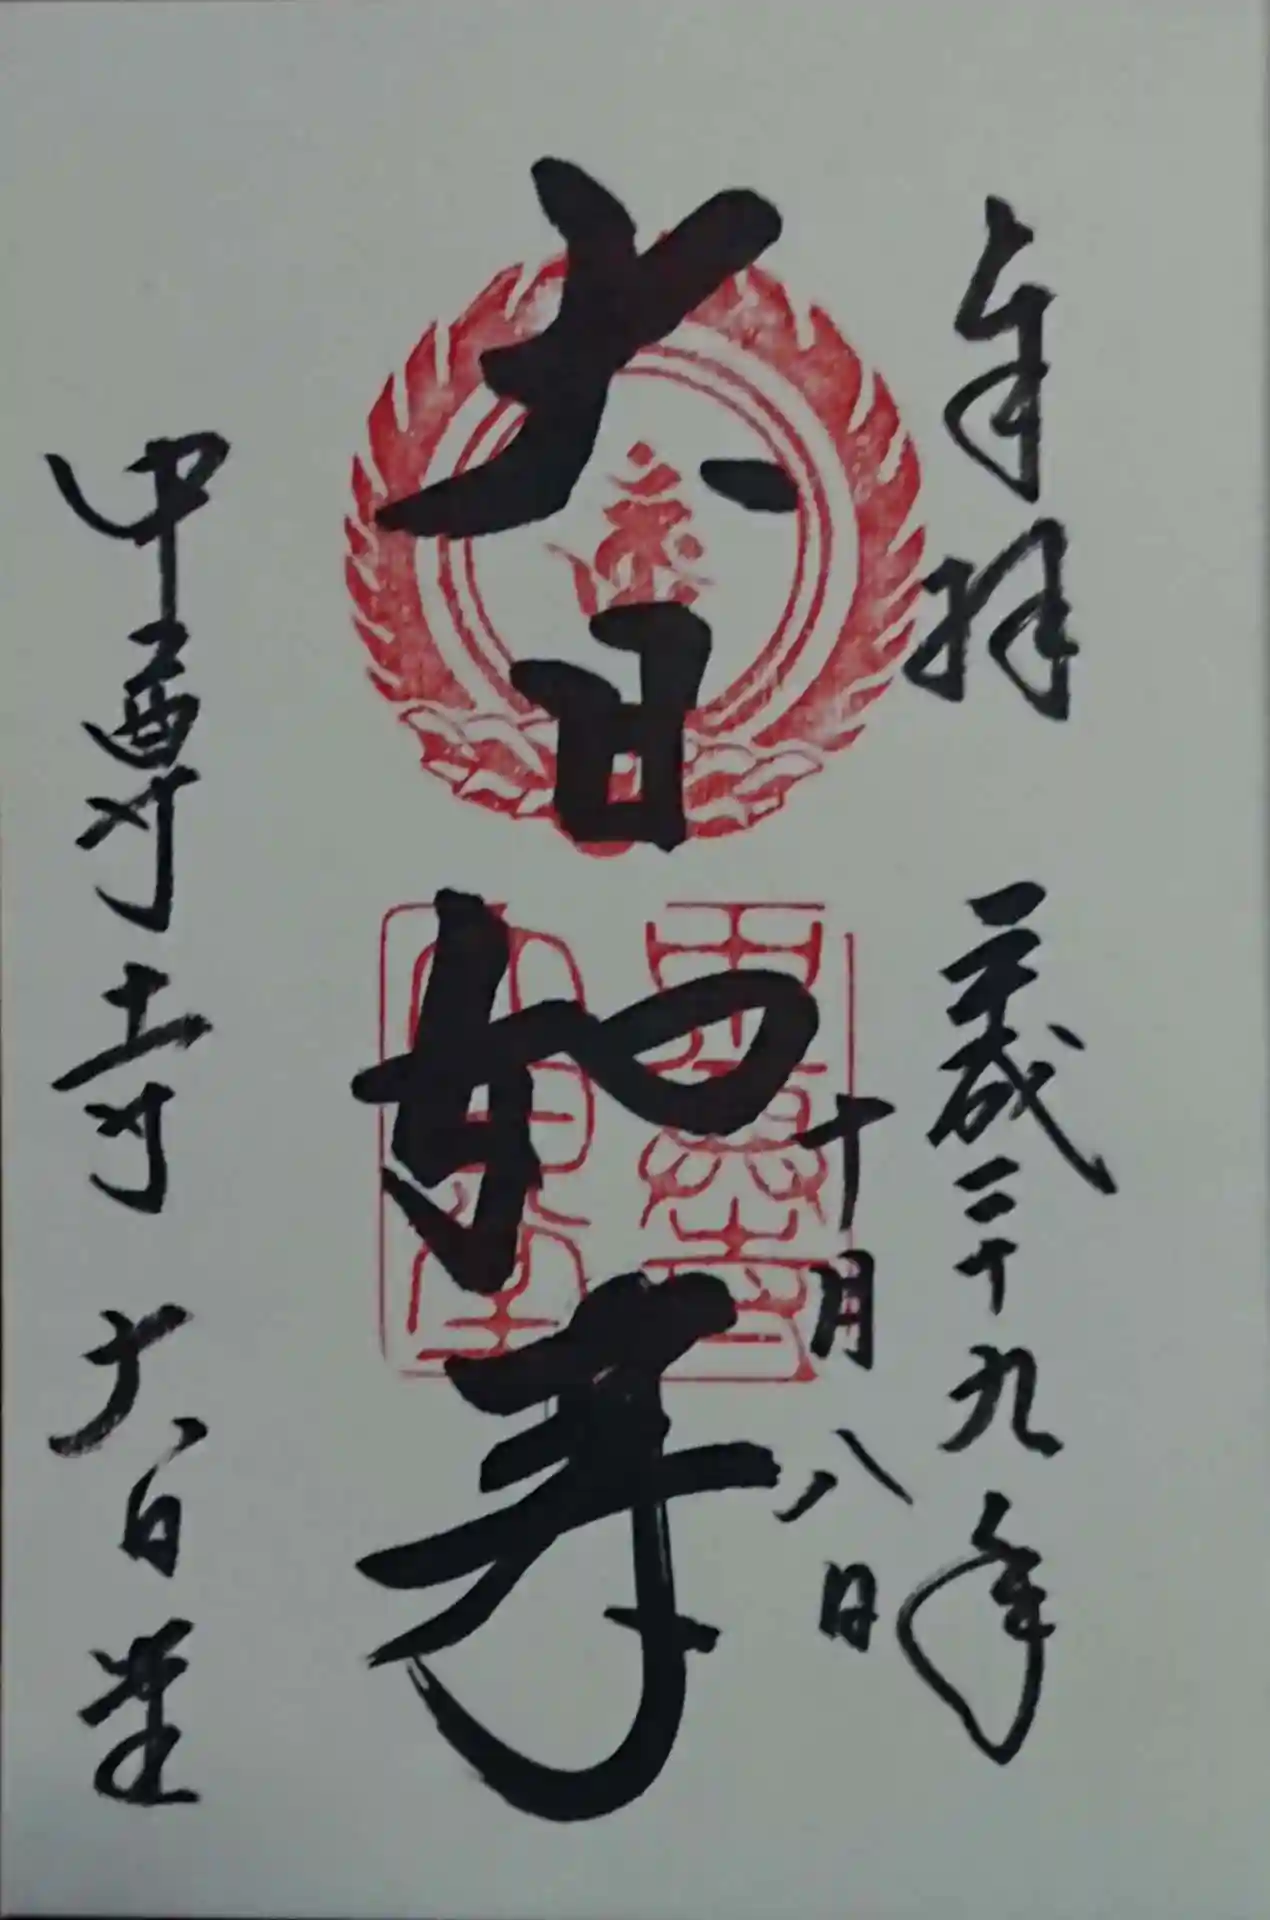 奉拝 平成二十九年
十月八日
大日如来
中尊寺 大日堂